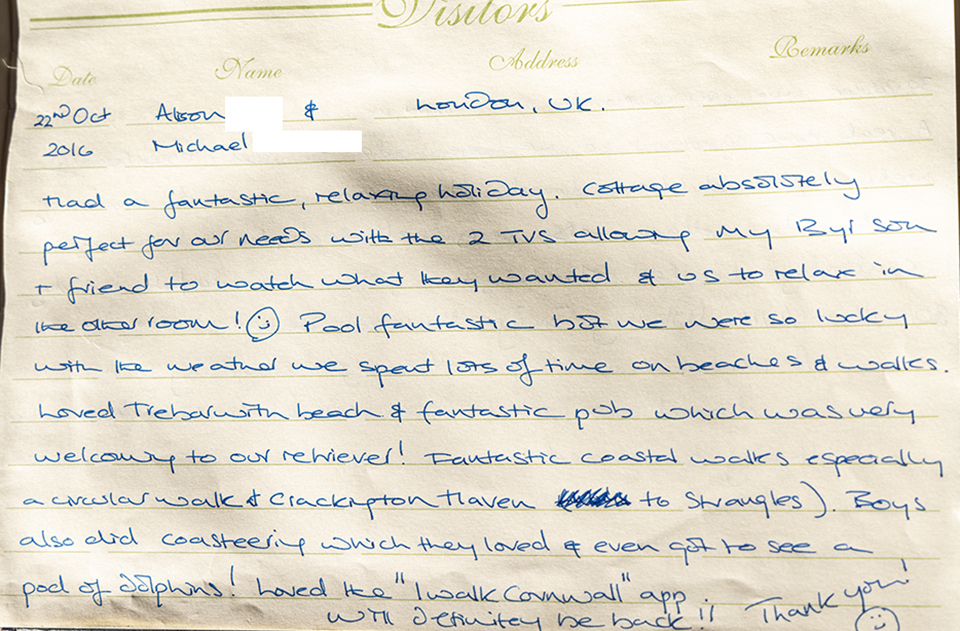 Visitors
Date Name Address Remarks
22ND Oct Alison & London, UK.
2016 Michael
Had a fantastic, relaxing holiday. Cottage absolutely
perfect for our needs with the 2 TVS allowing my 13yr son
+ friend to watch what they wanted & us to relax in
the other room! ☺ Pool fantastic but we were so lucky
with the weather we spent lots of time on beaches & walks.
Loved Trebarwith beach & fantastic pub which was very
welcoming to our retriever! Fantastic coastal walks especially
a circular walk & Crackington Haven to Strangles). Boys
also did coasteering which they loved & even got to see a
pod of dolphins! Loved the "I walk Cornwall" app.
Will definitely be back!! Thank you! ☺